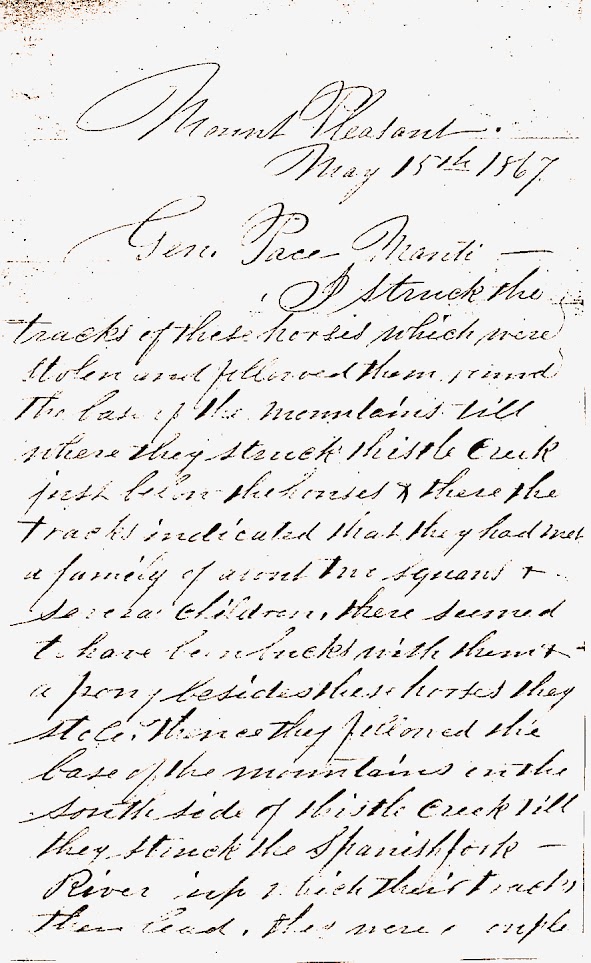 Mount Pleasant.
May 15th 1867
Gen. Pace Manti —
I struck the
tracks of these horses which were
stolen and followed them round
the base of the mountains till
where they struck thistle Creek
just below the houses & there the
tracks indicated that they had met
a family of about two squaws &
several children, there seemed
to have been bucks with them &
a pony besides these horses they
stole. Thence they followed the
base of the mountains on the
south side of thistle Creek till
they struck the Spanishfork —
River up which their tracks
then lead. they were a